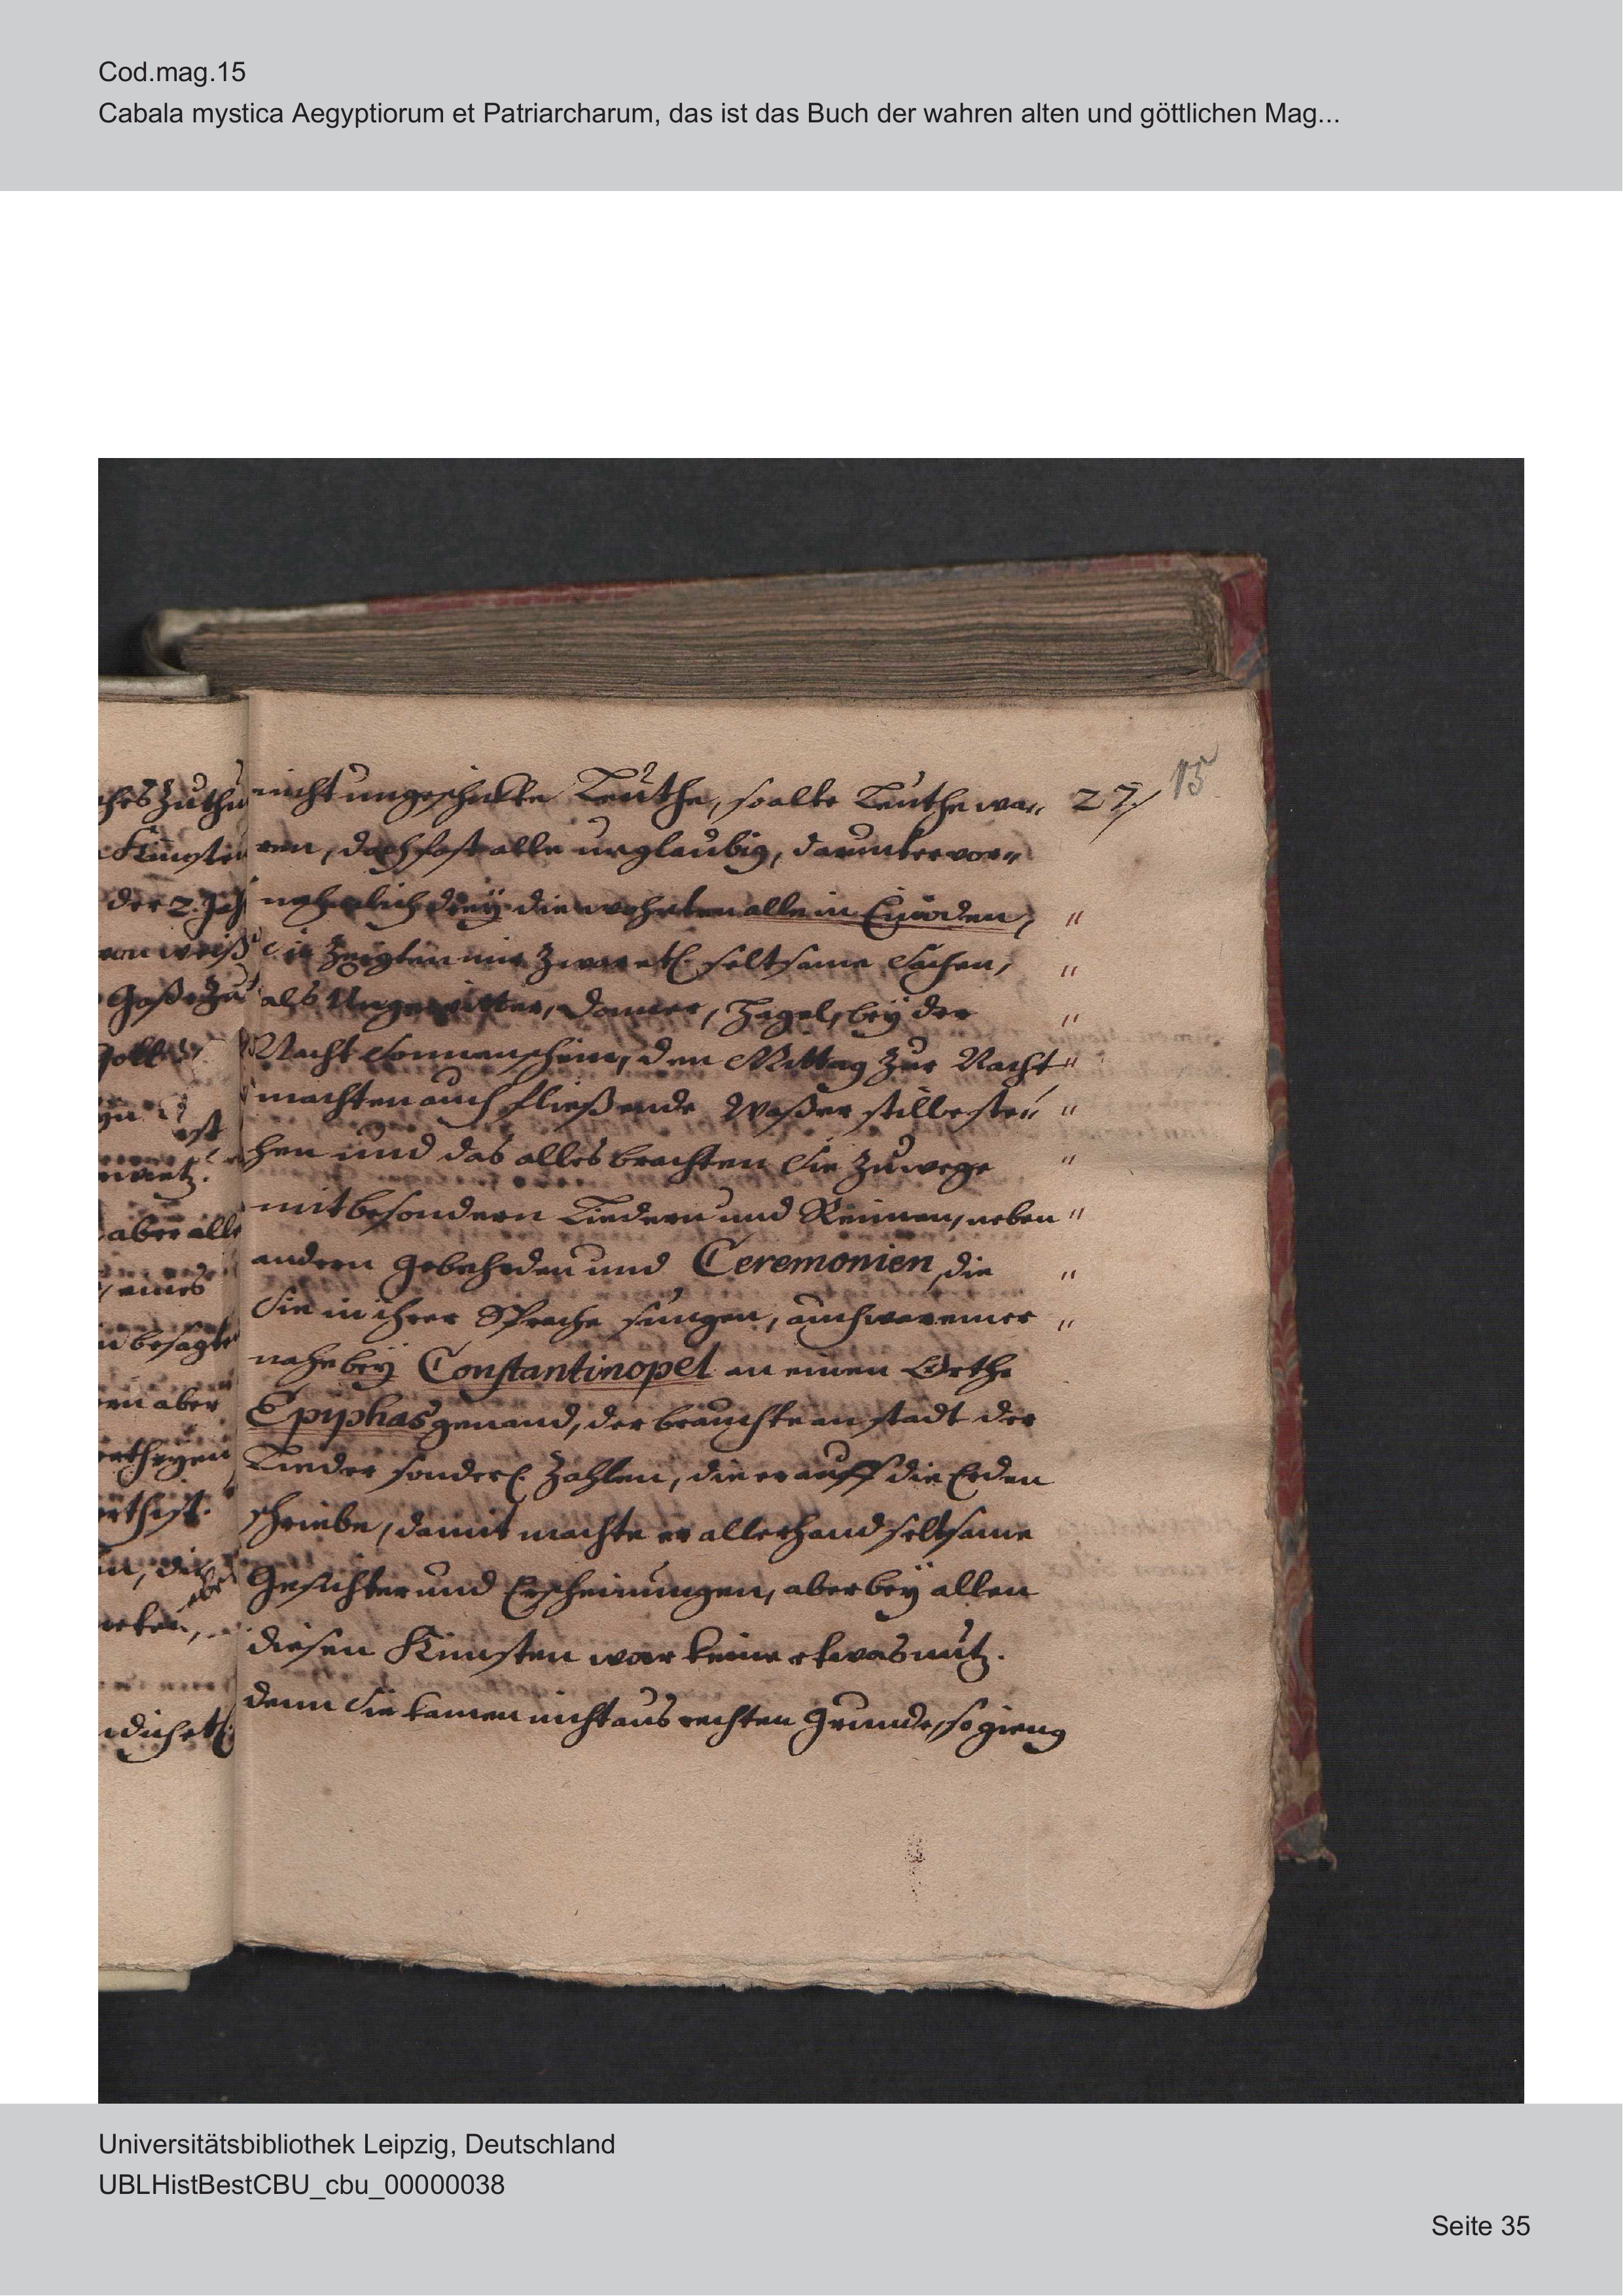 Cod.mag.15
Cabala mystica Aegyptiorum et Patriarcharum, das ist das Buch der wahren alten und göttlichen Mag...
15
nicht ungeschickte Leuthe, so alte Leuthe wa- 27/
ren, doch fast alle unglaubig, darunter vor-
nehmlich drey die wohnten alle in Einöden, "
die zeigten mir zwar etl. seltsame Sachen, "
als Ungewitter, Donner, Hagel, bey der "
Nacht Sonnenschein, den Mittag zur Nacht "
machten auch fließende Waßer stille ste- "
hen und das alles brachten Sie zu wege "
mit besondern Liedern und Reimen, neben "
andern Gebehrden und Ceremonien, die "
Sie in ihrer Sprache sungen, auch war einer "
nahe bey Constantinopel an einen Orthe
Epyphas genand, der brauchte an stadt der
Lieder sonderl. Zahlen, die er auff die Erden
schriebe, damit machte er allerhand seltsame
Gesichter und Erscheinungen, aber bey allen
diesen Künsten war keine etwas nutz.
denn Sie kamen nicht aus rechten Grunde, so gieng
Universitätsbibliothek Leipzig, Deutschland
UBLHistBestCBU_cbu_00000038
Seite 35